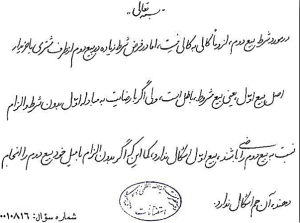 بسمه تعالی
در مورد شرط بیع دوم، از دو کالی به کالی نیست، اما در فرض شرط زیاده در بیع دوم از طرف مشتری یا خریدار
اصل بیع اول یعنی بیع مشروط، باطل است، ولی اگر با رضایت به مبادله اول بدون شرط و الزام
نسبت به بیع دوم راضی باشند، بیع اول اشکال ندارد، کما این که اگر بدون الزام با میل خود بیع دوم را انجام
دهند، آن هم اشکال ندارد.
شماره سؤال: ۰۰۱۰۸۱۶